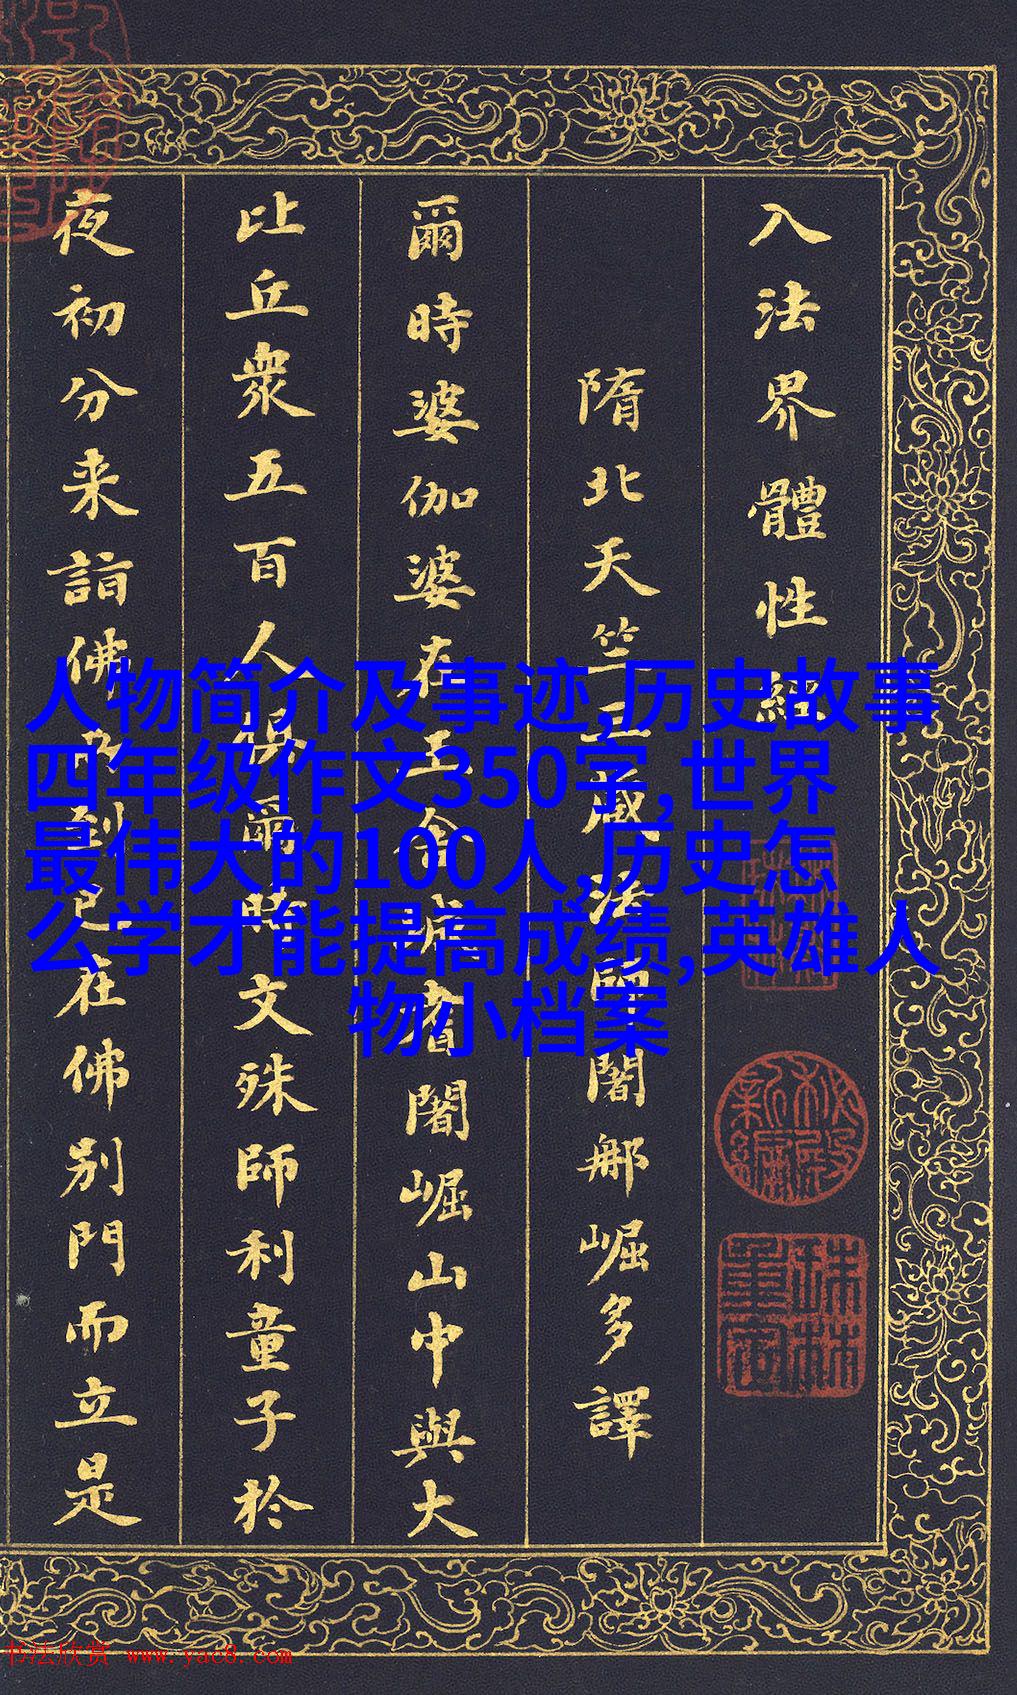 入法界體性經
隋北天竺三藏法師闍那崛多譯
爾時婆伽婆在王舍城耆闍崛山中與大
比丘衆五百人俱爾時文殊師利童子於
夜初分来詣佛所到已在佛別門而立是
人物简介及事迹,历史故事
四年级作文350字,世界
最伟大的100人,历史怎
么学才能提高成绩,英雄人
物小档案
秘殿新編
珠林重定
书法欣赏 www.yac8.com